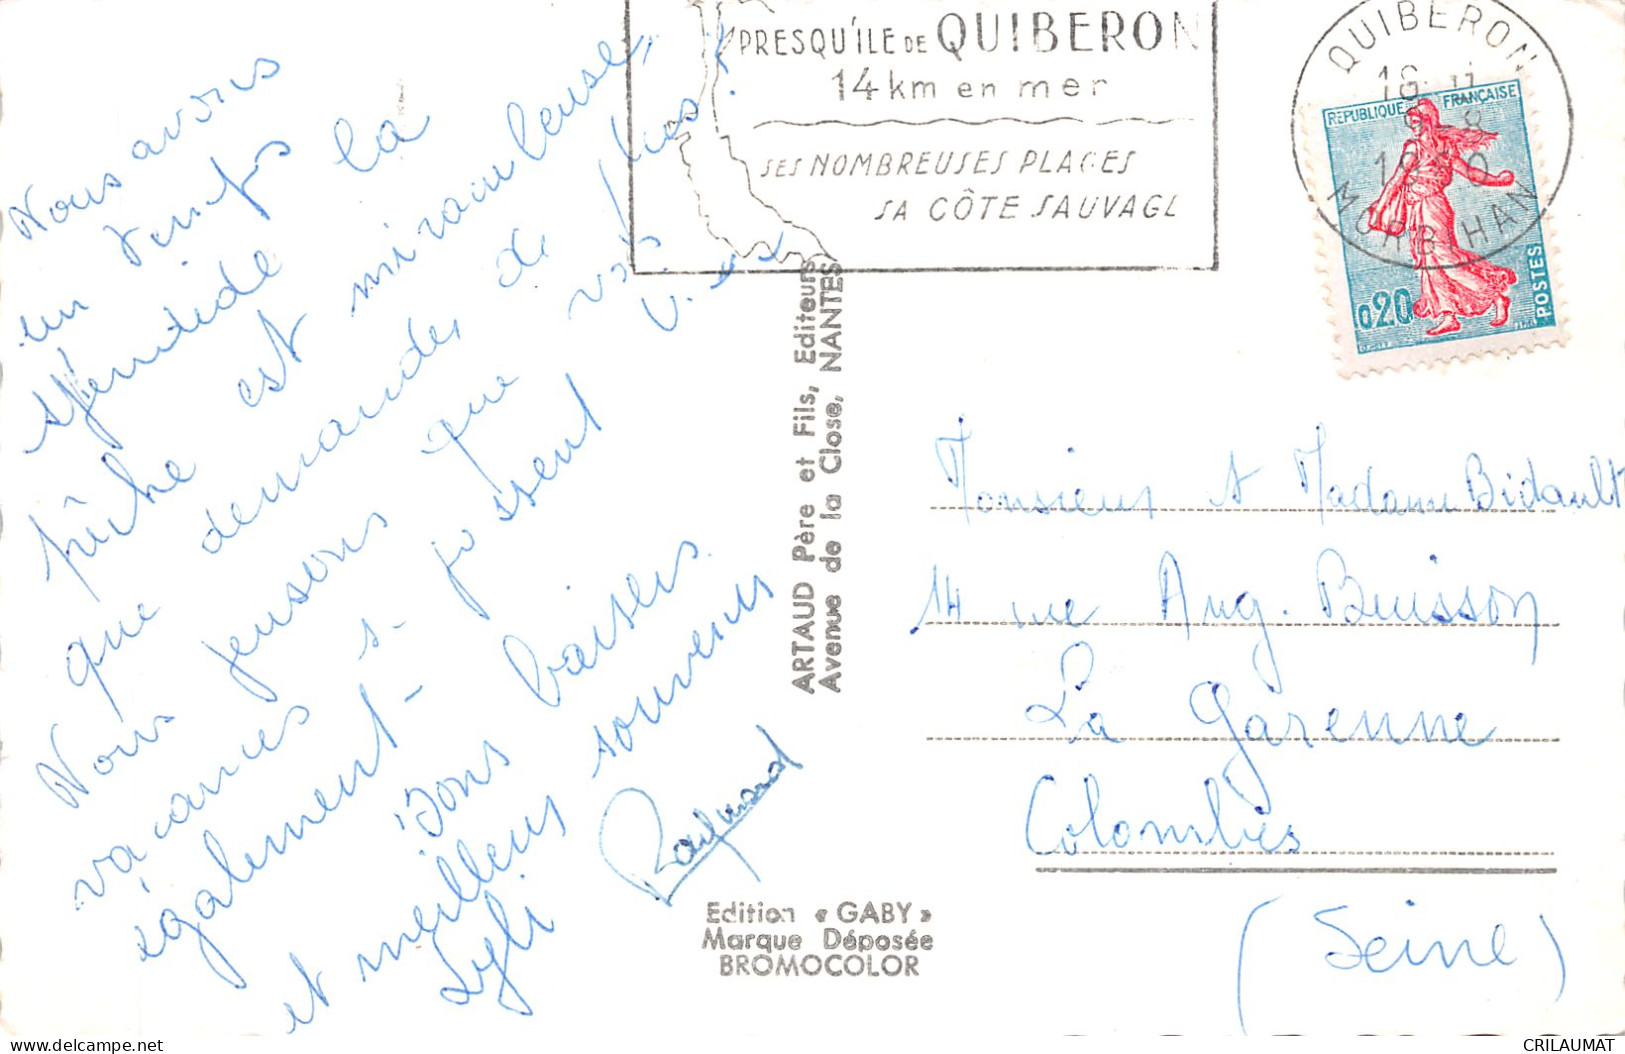 Nous avons
un temps
splendide la
pêche est miraculeuse,
que demander de plus !
Nous pensons que vos
vacances se passent
également
Bons baisers
et meilleurs souvenirs
Lyli
Raymond
PRESQU'ILE DE QUIBERON
14 km en mer
SES NOMBREUSES PLAGES
SA CÔTE SAUVAGE
QUIBERON
MORBIHAN
REPUBLIQUE FRANÇAISE
0,20
POSTES
ARTAUD Père et Fils, Editeurs
Avenue de la Close, NANTES
Monsieur et Madame Bidault
14 rue Aug. Buisson
La Garenne
Colombes
(Seine)
Edition « GABY »
Marque Déposée
BROMOCOLOR
CRILAUMAT